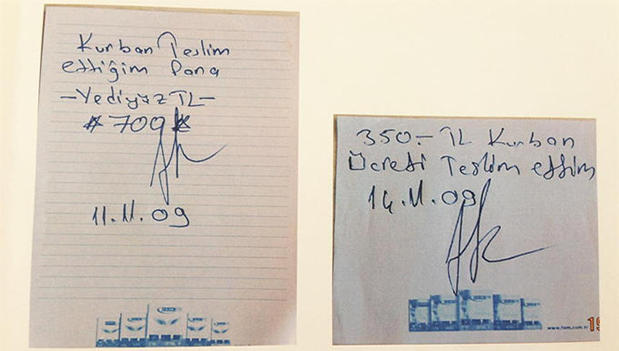 Kurban Teslim
ettiğim Para
-Yediyüz TL-
#700#
11.11.09
350.- TL Kurban
Ücreti Teslim ettim
14.11.09
www.fem.com.tr